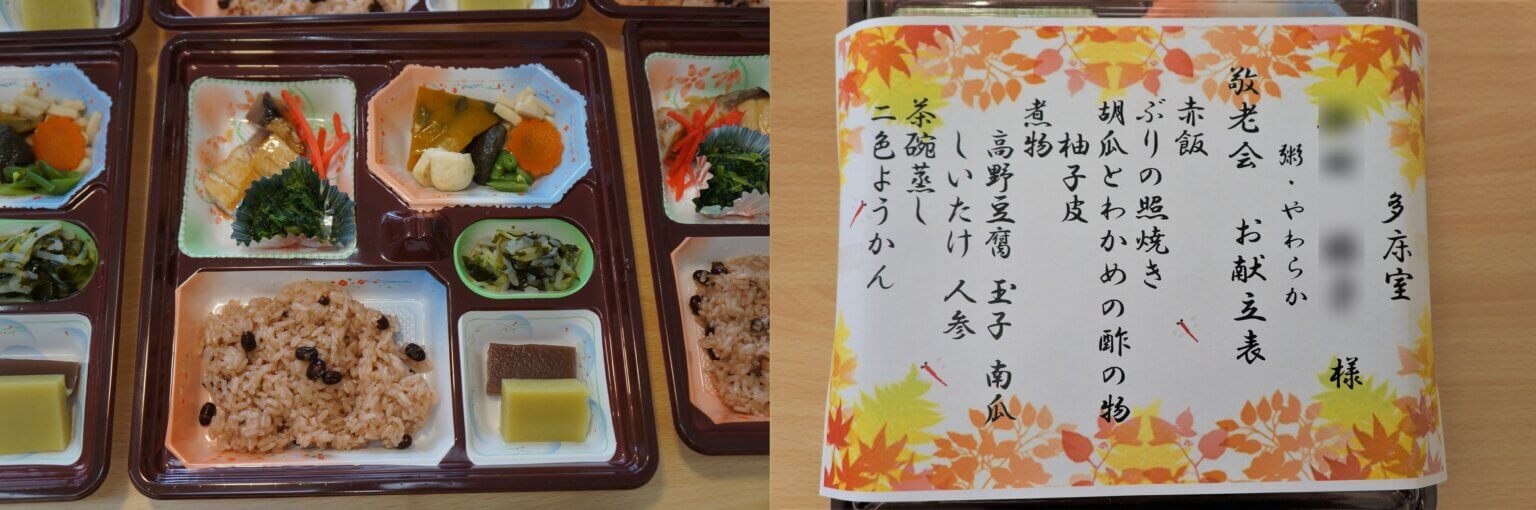 多床室
様
粥・やわらか
敬老会 お献立表
赤飯
ぶりの照焼き
胡瓜とわかめの酢の物
柚子皮
煮物
高野豆腐 玉子 南瓜
しいたけ 人参
茶碗蒸し
二色ようかん